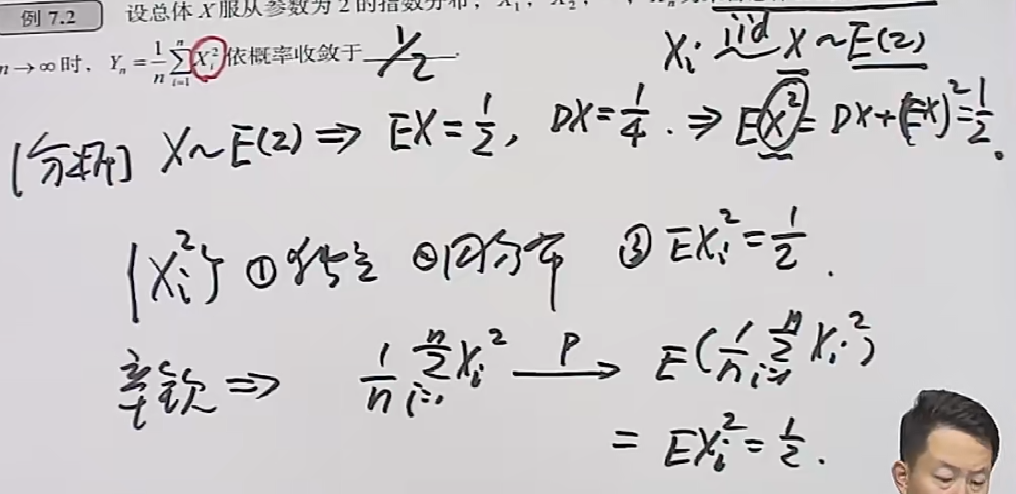 例 7.2 设总体 X 服从参数为 2 的指数分布，X₁，X₂，
n→∞ 时，Yₙ = 1/n ∑ᵢ₌₁ⁿ Xᵢ² 依概率收敛于 1/2 .
Xᵢ iid X ~ E(2)
[分析] X ~ E(2) ⇒ EX = 1/2, DX = 1/4. ⇒ E(X²) = DX + (EX)² = 1/2.
{Xᵢ²} ①独立 ②同分布 ③ EXᵢ² = 1/2.
辛钦 ⇒ 1/n ∑ᵢ₌₁ⁿ Xᵢ² —P→ E(1/n ∑ᵢ₌₁ⁿ Xᵢ²)
= EXᵢ² = 1/2.